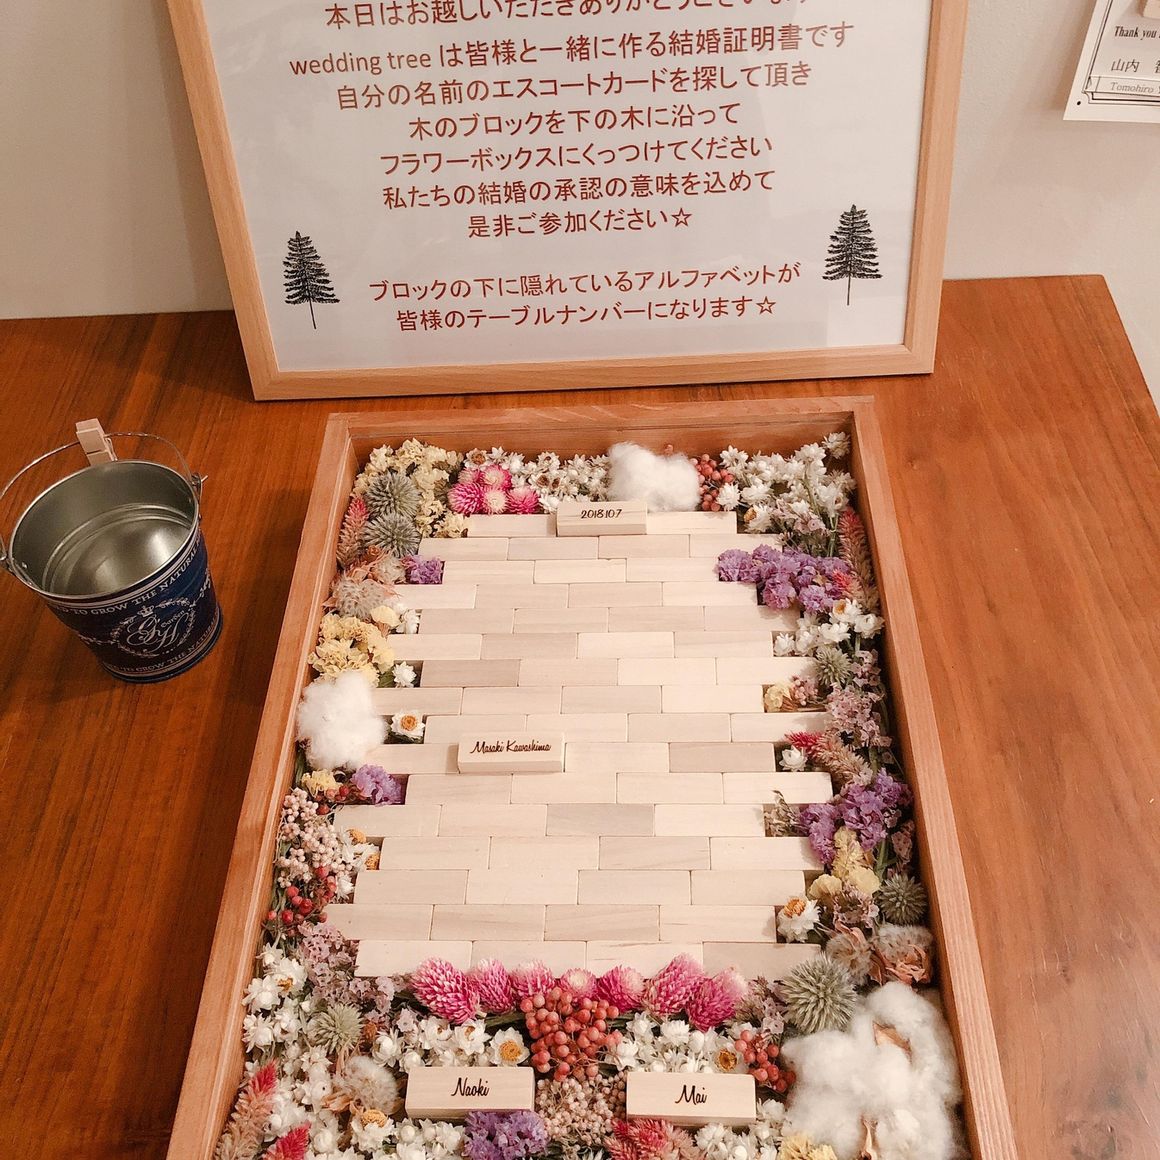 本日はお越しいただきありがとうございます
wedding tree は皆様と一緒に作る結婚証明書です
自分の名前のエスコートカードを探して頂き
木のブロックを下の木に沿って
フラワーボックスにくっつけてください
私たちの結婚の承認の意味を込めて
是非ご参加ください☆
ブロックの下に隠れているアルファベットが
皆様のテーブルナンバーになります☆
Thank you
山内
Tomohiro
TO GROW THE NATURA
GH
Garden
TO GROW THE NATU
2018.10.7
Masaki Kawashima
Naoki
Mai